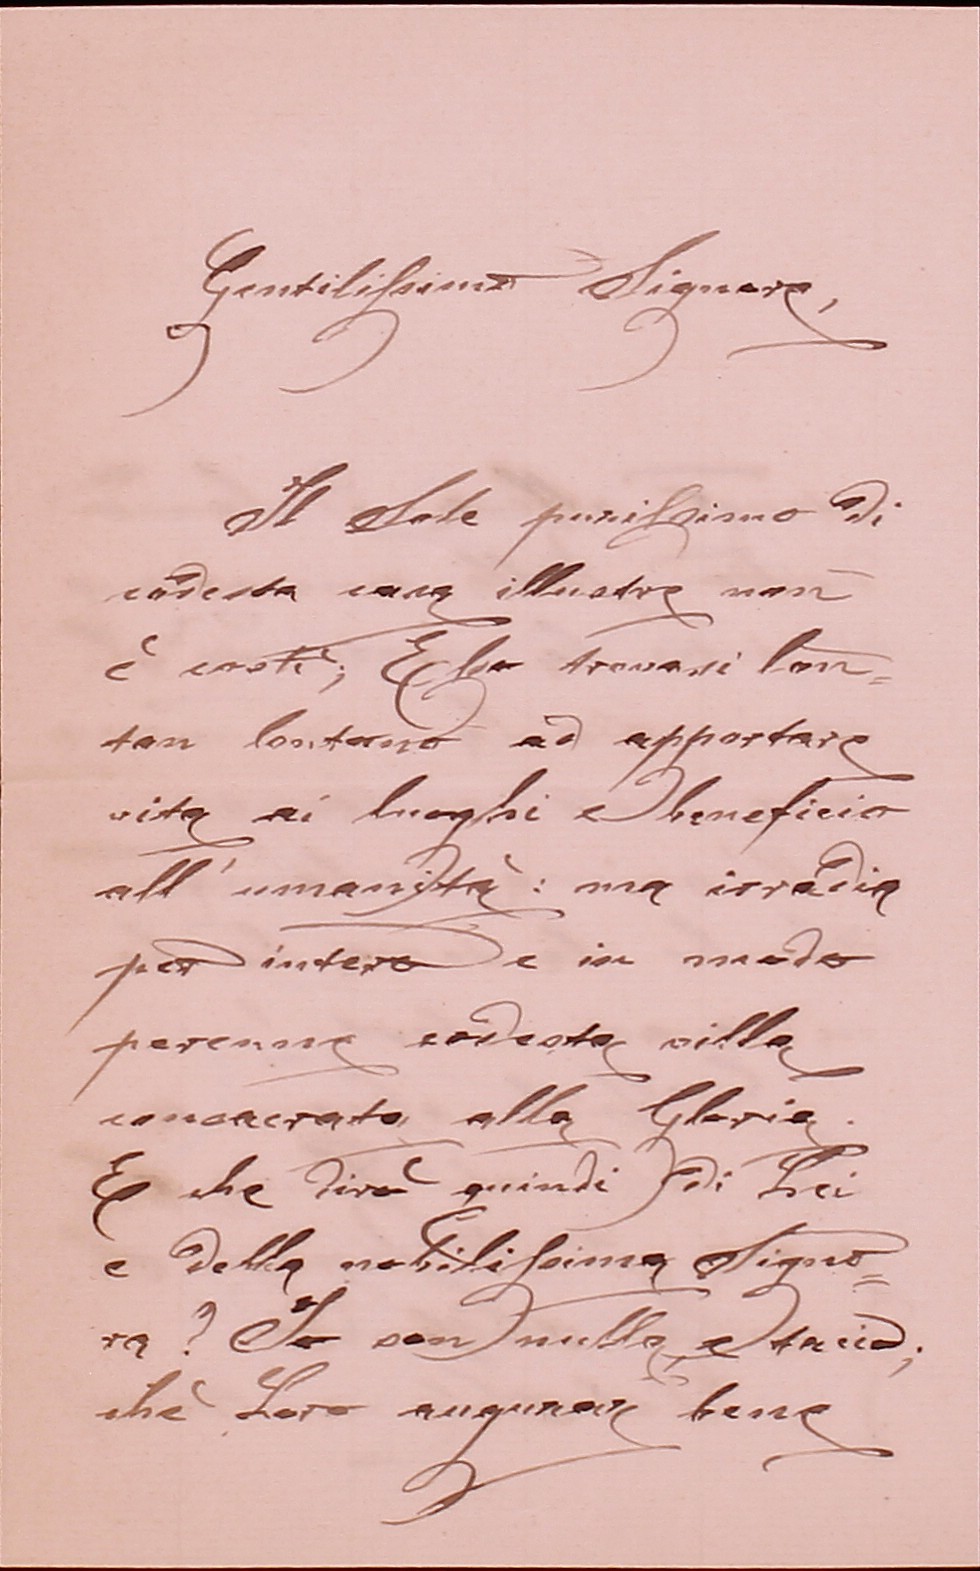 Gentilissima Signora,
Il Sole purissimo di
codesta casa illustre non
è costì; Ello trovasi lon=
tan lontano ad apportare
vita ai luoghi e beneficio
all'umanità: ma irradia
per intero e in modo
perenne codesta villa
consacrata alla Gloria.
E che dirò quindi di Lei
e della nobilissima Signo=
ra? Io son nulla e tacio;
chè Loro augurare bene